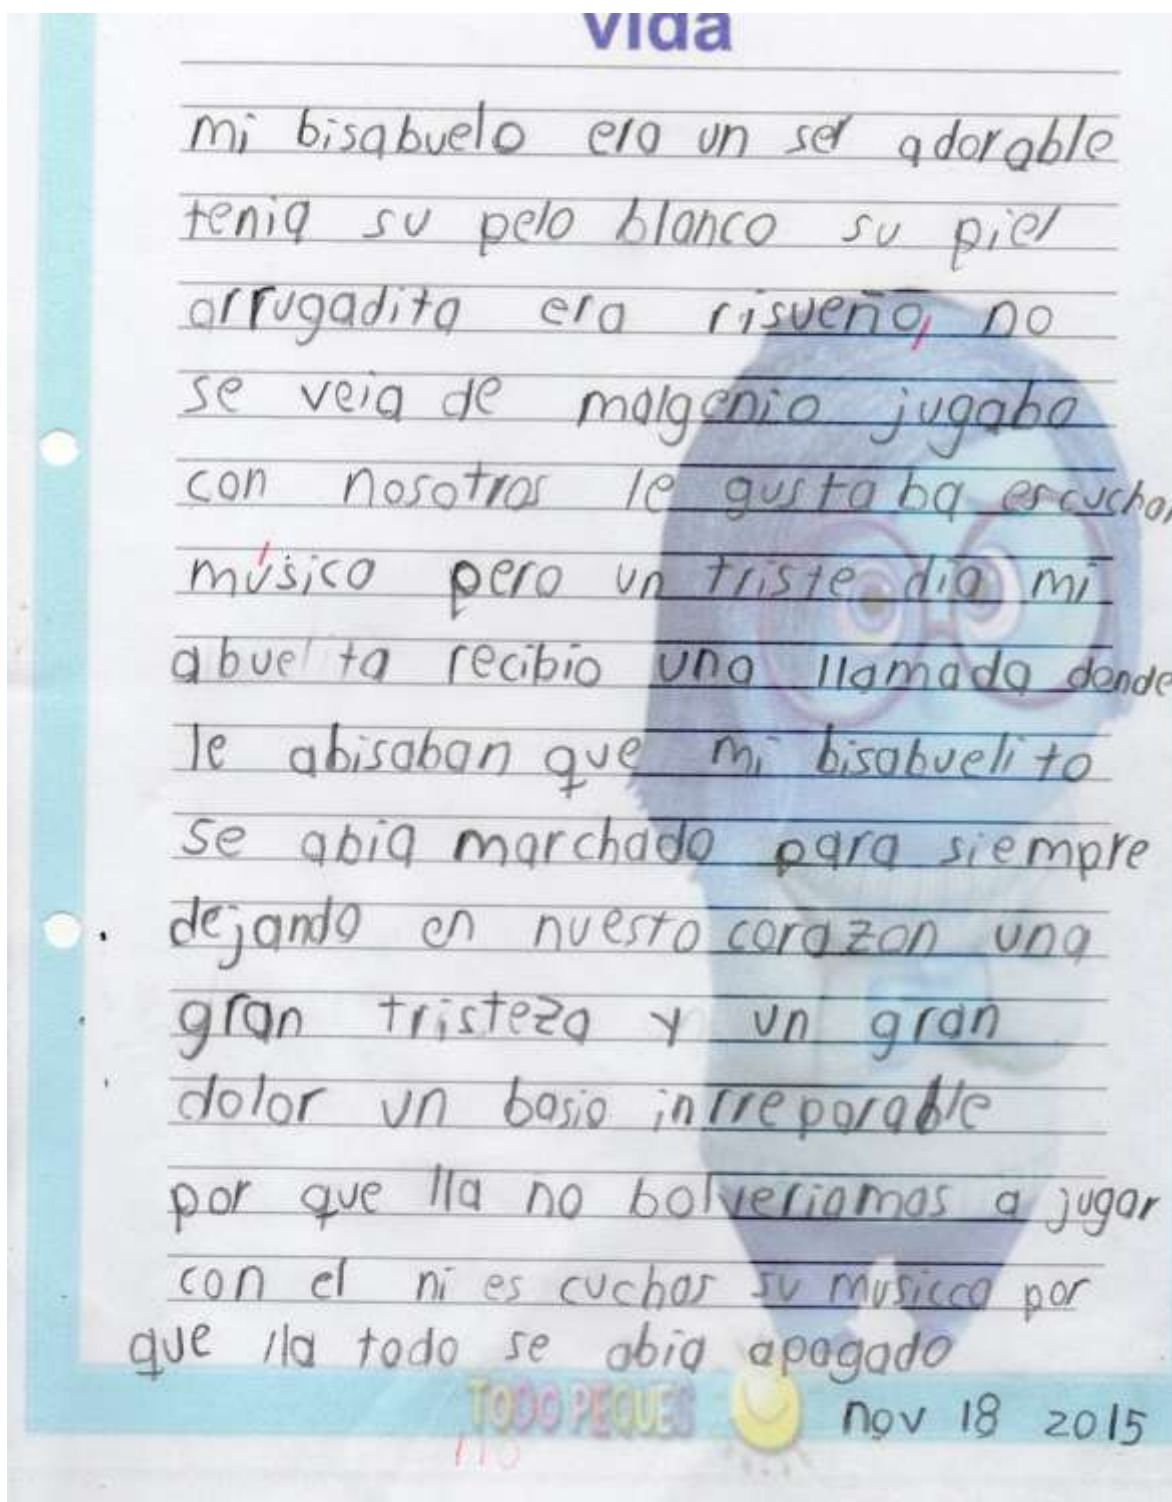 vida
mi bisabuelo era un ser adorable
tenia su pelo blanco su piel
arrugadita era risueño, no
se veia de malgenio jugaba
con nosotros le gustaba escuchar
música pero un triste dia mi
abuelita recibio una llamada donde
le abisaban que mi bisabuelito
se abia marchado para siempre
dejando en nuesto corazon una
gran tristeza y un gran
dolor un basio inrreparable
por que lla no bolveriamos a jugar
con el ni es cuchar su musicca por
que lla todo se abia apagado
TODO PEQUES
nov 18 2015